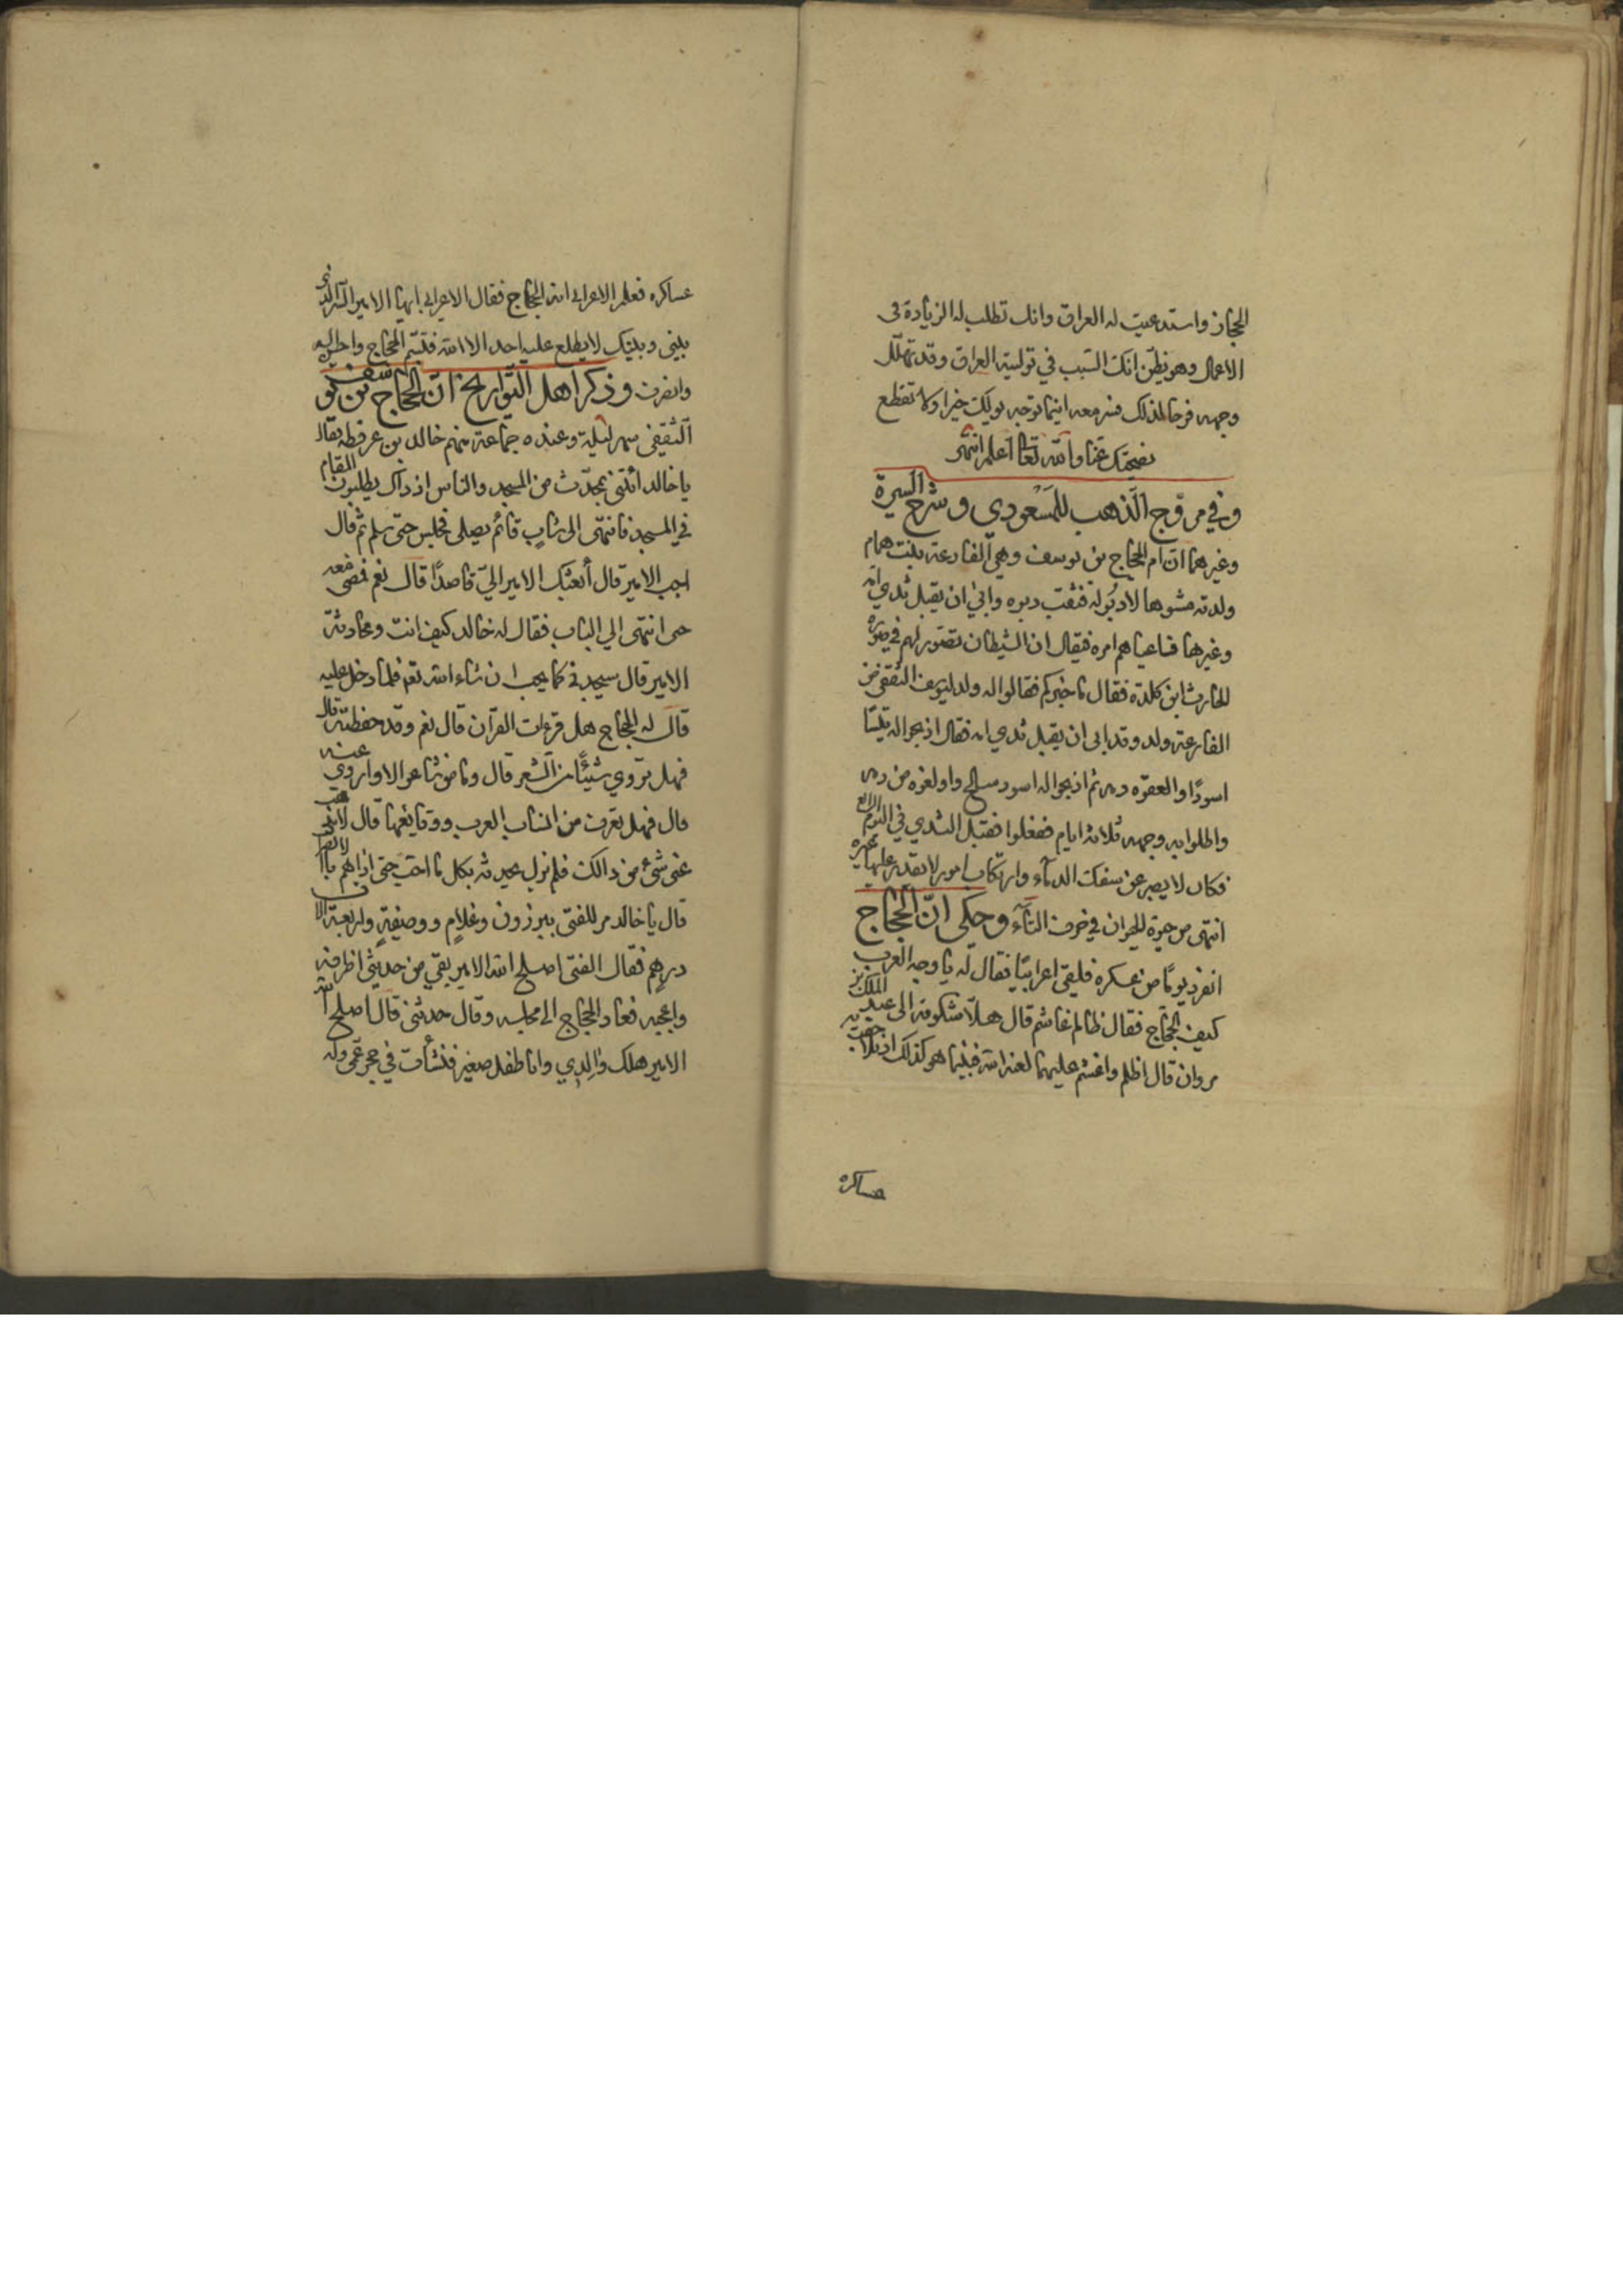 الحجاز واستدعيت له العراق وانك تطلب له الزيادة في
الاعمال وهو يظن انك السبب في تولية العراق وقد تهلل
وجهه فرحا لذلك فسر معه اينما توجه يوليك خيرا ولا تقطع
نصيحتك عنا والله تعا اعلم انتهى
وفي مروج الذهب للمسعودي وشرح السيرة
وغيرهما ان ام الحجاج بن يوسف وهي الفارعة بنت همام
ولدته مشوها لا دبر له فنقب دبره وابي ان يقبل ثدي امه
وغيرها فاعياهم امره فيقال ان الشيطان تصور لهم في صورة
الحارث ابن كلدة فقال ما خبركم فقالوا له ولد ليوسف الثقفي من
الفارعة ولد وقد ابى ان يقبل ثدي امه فقال اذبحوا له تيسا
اسودا والعقوه دمه ثم اذبحوا له اسود سالخ واولغوه من دمه
واطلوا به وجهه ثلاثة ايام ففعلوا فقبل الثدي في اليوم الرابع
فكان لا يصبر عن سفك الدماء وارتكاب امور لا يقدر عليها غيره
انتهى من حيوة الحيوان في حرف التآء وحكى ان الحجاج
انفرد يوما من عسكره فلقى اعرابيا فقال له يا وجه العرب
كيف الحجاج فقال ظالم غاشم قال هلا شكوته الى عبد الملك بن
مروان قال اظلم واغشم عليهما لعنة الله فبينما هو كذلك اذ تلاحقت به
عساكره
عساكره فعلم الاعرابى انه الحجاج فقال الاعرابى ايها الامير السر الذي
بيني وبينك لا يطلع عليه احد الا الله فتبسم الحجاج واحسن اليه
وانصرف وذكر اهل التواريخ ان الحجاج بن يوسف
الثقفي سهر ليلة وعنده جماعة منهم خالد بن عرفطه فقال
يا خالد أئتني بمحدث من المسجد والناس اذ ذاك يطيلون المقام
في المسجد فانتهى الى شاب قائم يصلى فجلس حتى سلم ثم قال
اجب الامير قال أبعثك الامير الي قاصدا قال نعم فمضى معه
حتى انتهى الي الباب فقال له خالد كيف انت ومحادثة
الامير قال سيجدني كما يحب ان شاء الله تعم فلما دخل عليه
قال له الحجاج هل قرءات القرآن قال نعم وقد حفظته قال
فهل تروي شيئا من الشعر قال وما من شاعر الا واروي عنه
قال فهل تعرف من انساب العرب ووقايعها قال لا يذهب
عنى شئ من ذالك فلم يزل يحدثه بكل ما احب حتى اذا هم بالانصراف
قال يا خالد مر للفتى ببرزون وغلام ووصيفة واربعة الاف
درهم فقال الفتى اصلح الله الامير بقي من حديثي اظرفه
واعجبه فعاد الحجاج الى مجلسه وقال حدثني قال اصلح الله
الامير هلك والدي وانا طفل صغير فنشأت في حجر عمى وله